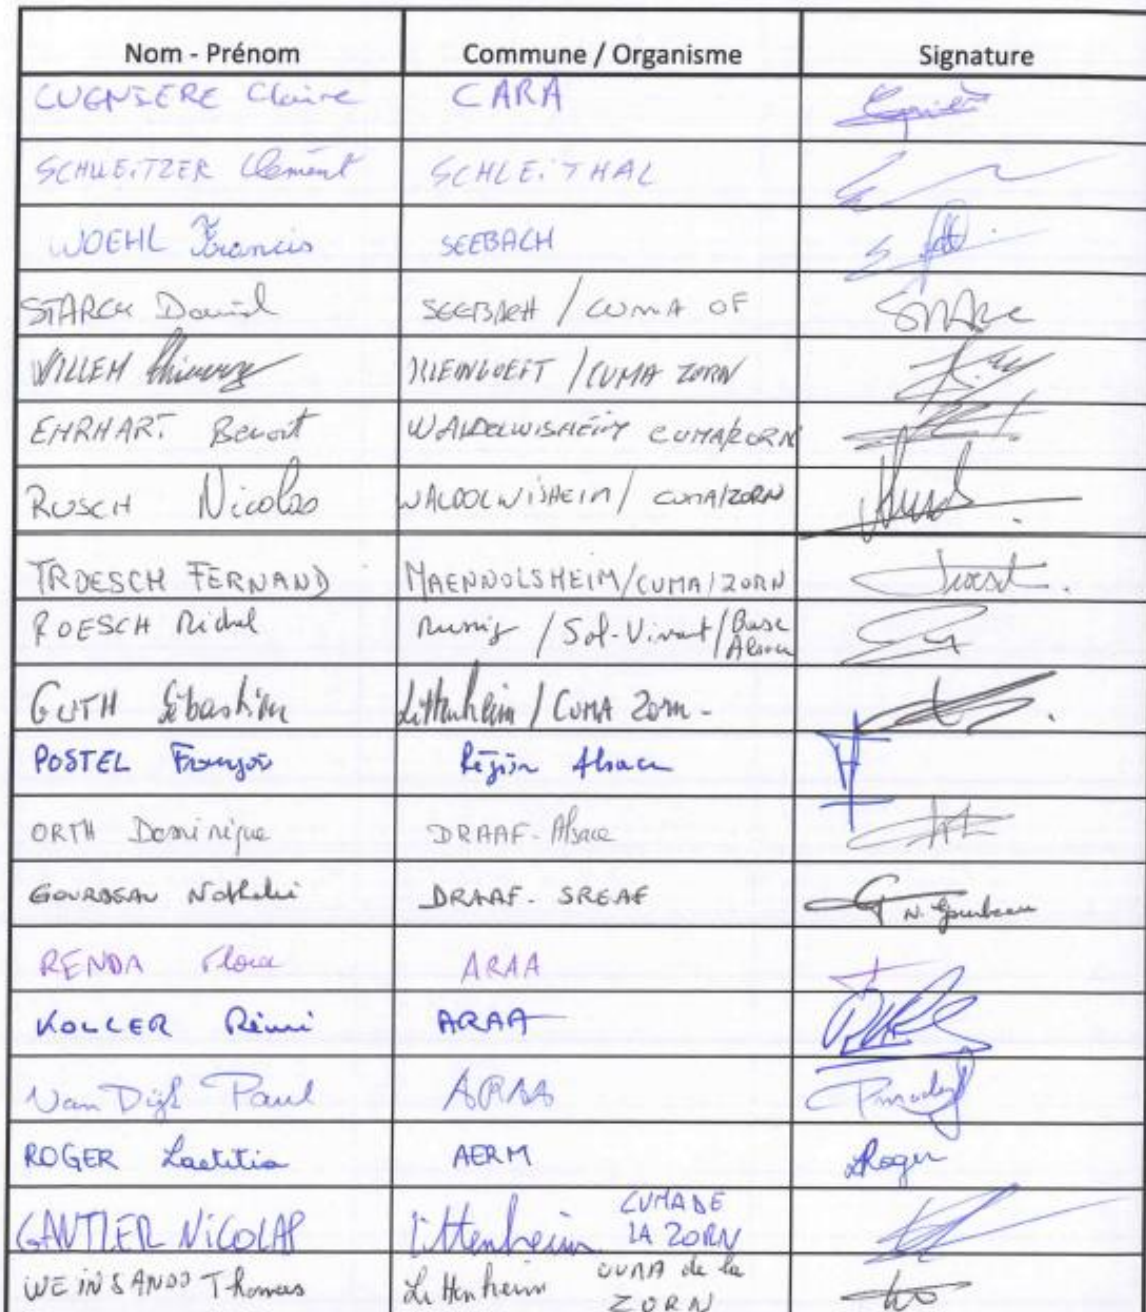 Nom - Prénom Commune / Organisme Signature
CUGNIERE Claire CARA
SCHWEITZER Clément SCHLEITHAL
WOEHL Francis SEEBACH
STARCK Daniel SEEBACH / CUMA OF
WILLEM Thierry KLEINGOEFT / CUMA ZORN
EHRHART Benoit WALDOLWISHEIM CUMA/ZORN
RUSCH Nicolas WALDOLWISHEIM / CUMA/ZORN
TROESCH FERNAND MAENNOLSHEIM/CUMA/ZORN
ROESCH Michel / Sol-Vivant / Base Alsace
GUTH Sébastien Littenheim / CUMA Zorn.
POSTEL François Région Alsace
ORTH Dominique DRAAF-Alsace
GOURBEAU Nathalie DRAAF-SREAF N. Gourbeau
RENDA Flora ARAA
KOLLER Rémi ARAA
Van Dijk Paul ARAA
ROGER Laetitia AERM LRoger
GANTIER NICOLAS Littenheim CUMA DE LA ZORN
WEINSANDO Thomas Littenheim CUMA de la ZORN